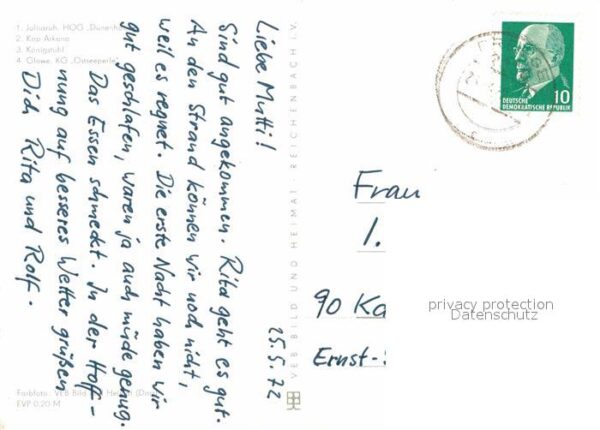 1. Juliusruh, HOG „Dünenha
2. Kap Arkona
3. Königstuhl
4. Glowe, KG „Ostseeperle“
25.5.72
Liebe Mutti!
Sind gut angekommen. Rita geht es gut.
An den Strand können wir noch nicht,
weil es regnet. Die erste Nacht haben wir
gut geschlafen, waren ja auch müde genug.
Das Essen schmeckt. In der Hoff-
nung auf besseres Wetter grüßen
Dich Rita und Rolf.
Farbfoto: VEB Bild und Heimat
EVP 0,20 M
VEB BILD UND HEIMAT REICHENBACH i. V.
DEUTSCHE
DEMOKRATISCHE REPUBLIK
10
Frau
1.
90 Ka
Ernst-
privacy protection
Datenschutz